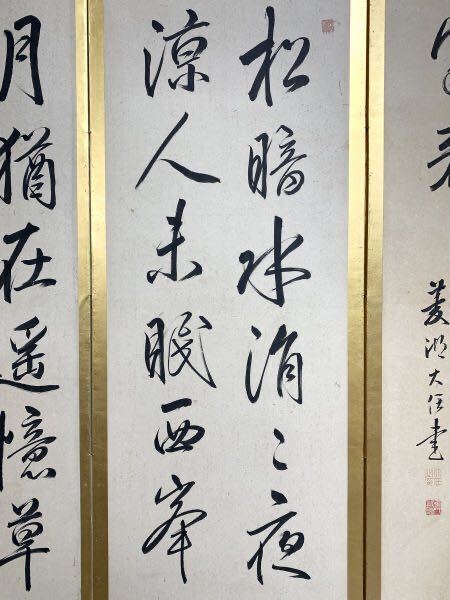 菱湖大任書
松暗水涓〻夜
涼人未眠西峯
月猶在遥憶草